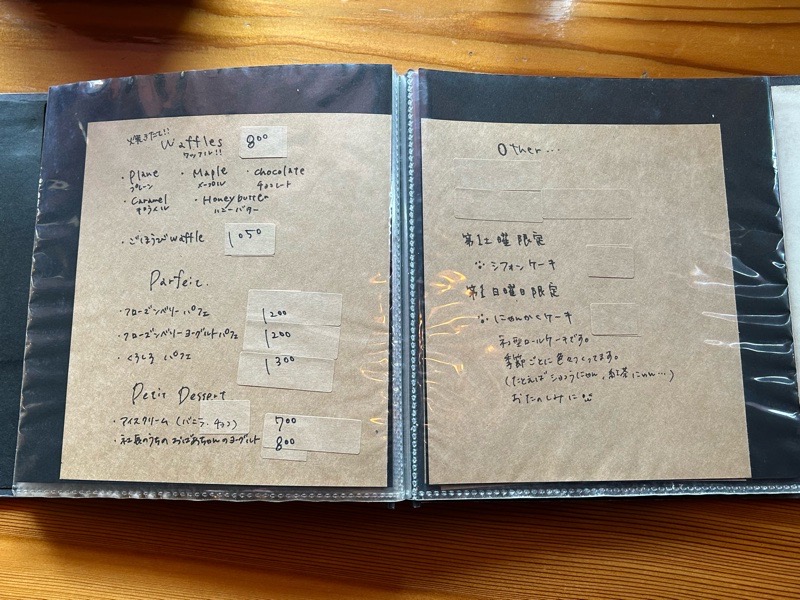 焼きたて!!
Waffles 800
ワッフル!!
・Plane ・Maple ・chocolate
プレーン メープル チョコレート
・Caramel ・Honey butter
キャラメル ハニーバター
・ごほうびwaffle 1050
Parfeit.
・フローズンベリー パフェ 1200
・フローズンベリーヨーグルトパフェ 1200
・くろしろ パフェ 1300
Petit Dessert
・アイスクリーム (バニラ・チョコ) 700
・社長のうちの おばあちゃんのヨーグルト 800
Other...
第1土曜限定
シフォンケーキ
第1日曜日限定
にゃんかくケーキ
和型ロールケーキです。
季節ごとに色々つくってます。
(たとえば ショコラにゃん, 紅茶にゃん…)
おたのしみに